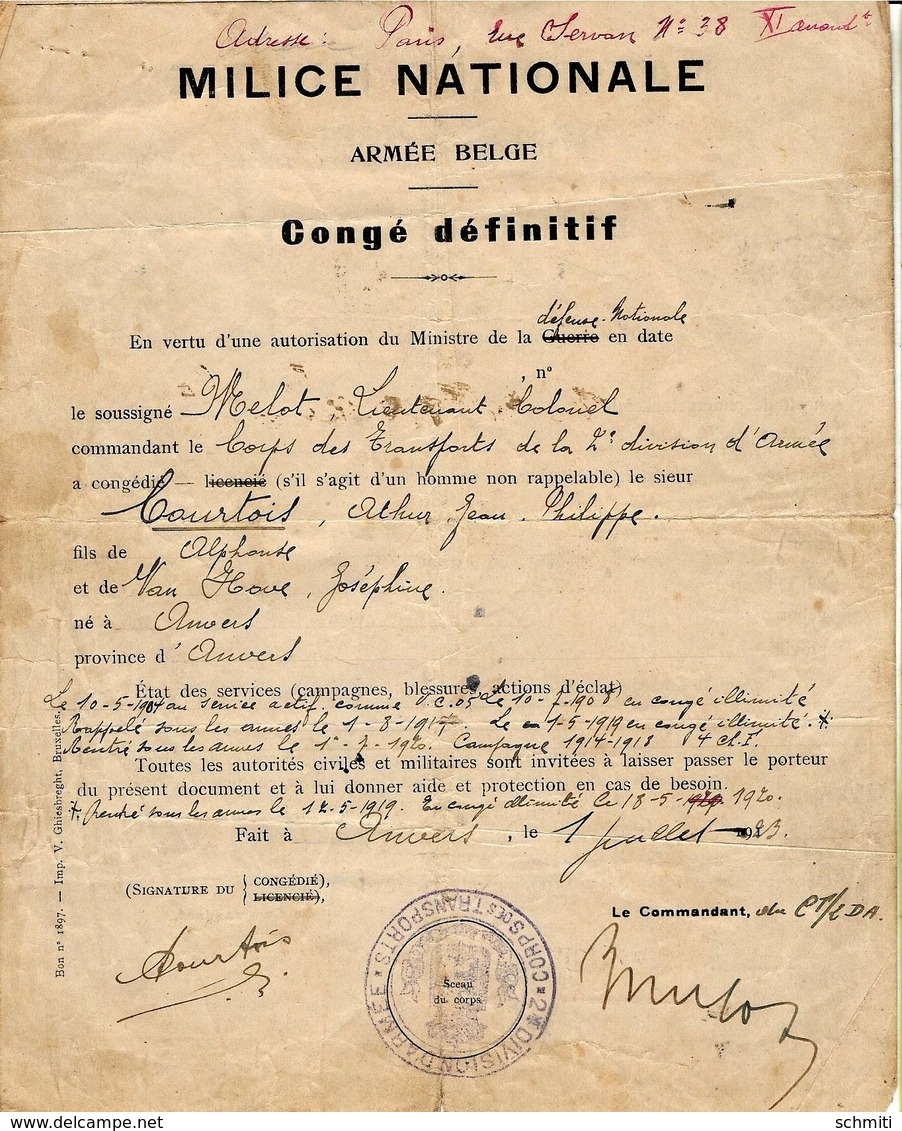 Adresse: Paris, rue Servan Nº 38 XI arrondt
MILICE NATIONALE
ARMÉE BELGE
Congé définitif
défense Nationale
En vertu d'une autorisation du Ministre de la Guerre en date
, nº
le soussigné Melot, Lieutenant Colonel
commandant le Corps des Transports de la 2e division d'Armée
a congédié — licencié (s'il s'agit d'un homme non rappelable) le sieur
Courtois, Athur Jean Philippe.
fils de Alphonse
et de Van Hove, Joséphine.
né à Anvers
province d'Anvers
État des services (campagnes, blessures, actions d'éclat)
Le 10-5-1904 au service actif comme V.C.05 Le 10-7-1908 en congé illimité
Rappelé sous les armes le 1-8-1917. Le 1-5-1919 en congé illimité. *
Rentré sous les armes le 1-7-1920. Campagne 1914-1918 4 ch.I.
Toutes les autorités civiles et militaires sont invitées à laisser passer le porteur
du présent document et à lui donner aide et protection en cas de besoin.
* Rentré sous les armes le 12-5-1919. En congé illimité le 18-5-1919 1920.
Fait à Anvers, le 1 Juillet 1923.
(SIGNATURE DU { CONGÉDIÉ),
LICENCIÉ),
Le Commandant, du CT/2DA.
Courtois
2e DIVISION D'ARMÉE * CORPS DES TRANSPORTS *
Sceau
du corps
Bon nº 1897. — Imp. V. Ghiesbreght, Bruxelles.
schmiti